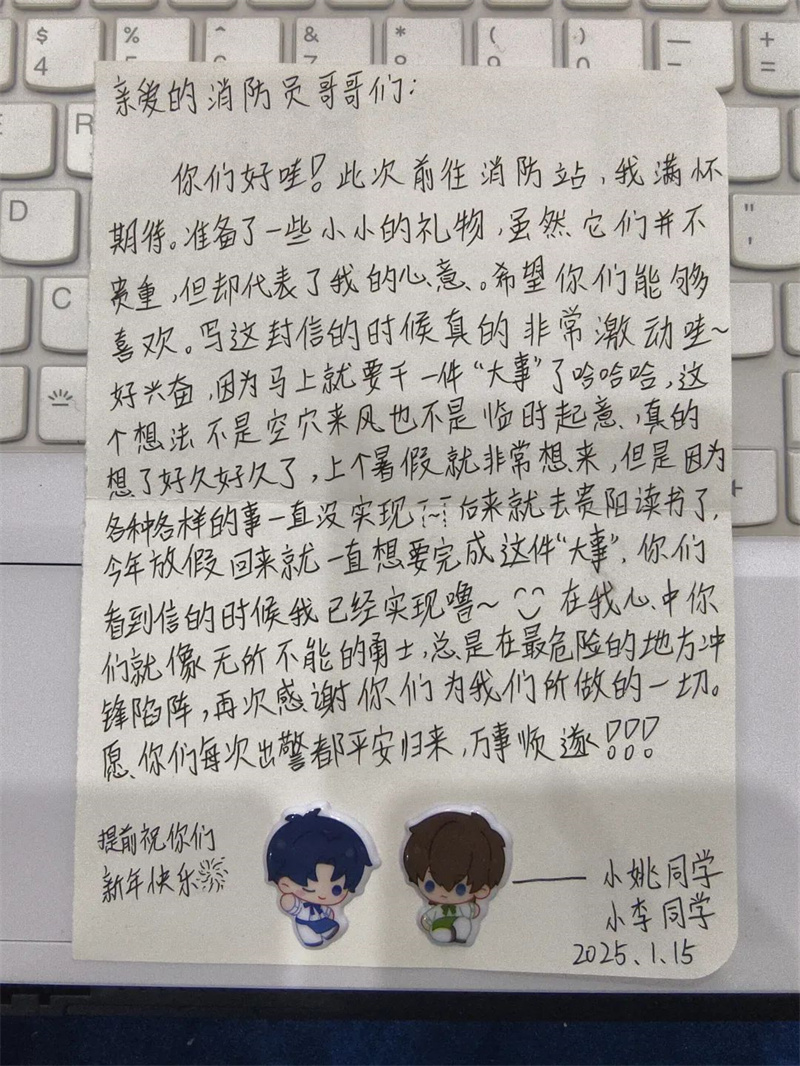 $ % ^ & * ( ) — +
4 5 6 7 8 9 0 - =
E R
D " '
C
+
亲爱的消防员哥哥们:
你们好哇!此次前往消防站,我满怀
期待。准备了一些小小的礼物,虽然它们并不
贵重,但却代表了我的心意。希望你们能够
喜欢。写这封信的时候真的非常激动哇~
好兴奋,因为马上就要干一件“大事”了哈哈哈,这
个想法不是空穴来风也不是临时起意,真的
想了好久好久了,上个暑假就非常想来,但是因为
各种各样的事一直没实现 后来就去贵阳读书了,
今年放假回来就一直想要完成这件“大事”,你们
看到信的时候我已经实现噜~ 在我心中你
们就像无所不能的勇士,总是在最危险的地方冲
锋陷阵,再次感谢你们为我们所做的一切。
愿你们每次出警都平安归来,万事顺遂!!!
提前祝你们
新年快乐
——小姚同学
小李同学
2025.1.15